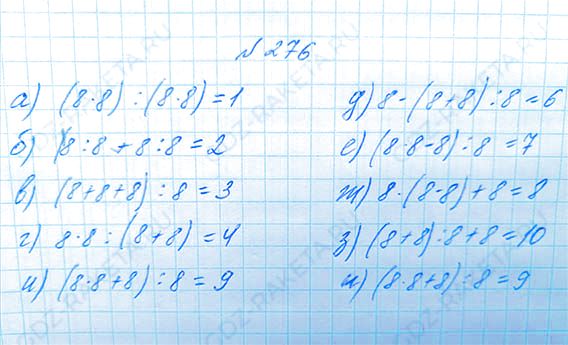 №276
а) (8·8) : (8·8) = 1
б) 8 : 8 + 8 : 8 = 2
в) (8+8+8) : 8 = 3
г) 8·8 : (8+8) = 4
и) (8·8+8) : 8 = 9
д) 8 - (8+8) : 8 = 6
е) (8·8-8) : 8 = 7
ж) 8·(8-8) + 8 = 8
з) (8+8) : 8 + 8 = 10
и) (8·8+8) : 8 = 9
GDZ-RAKETA.RU